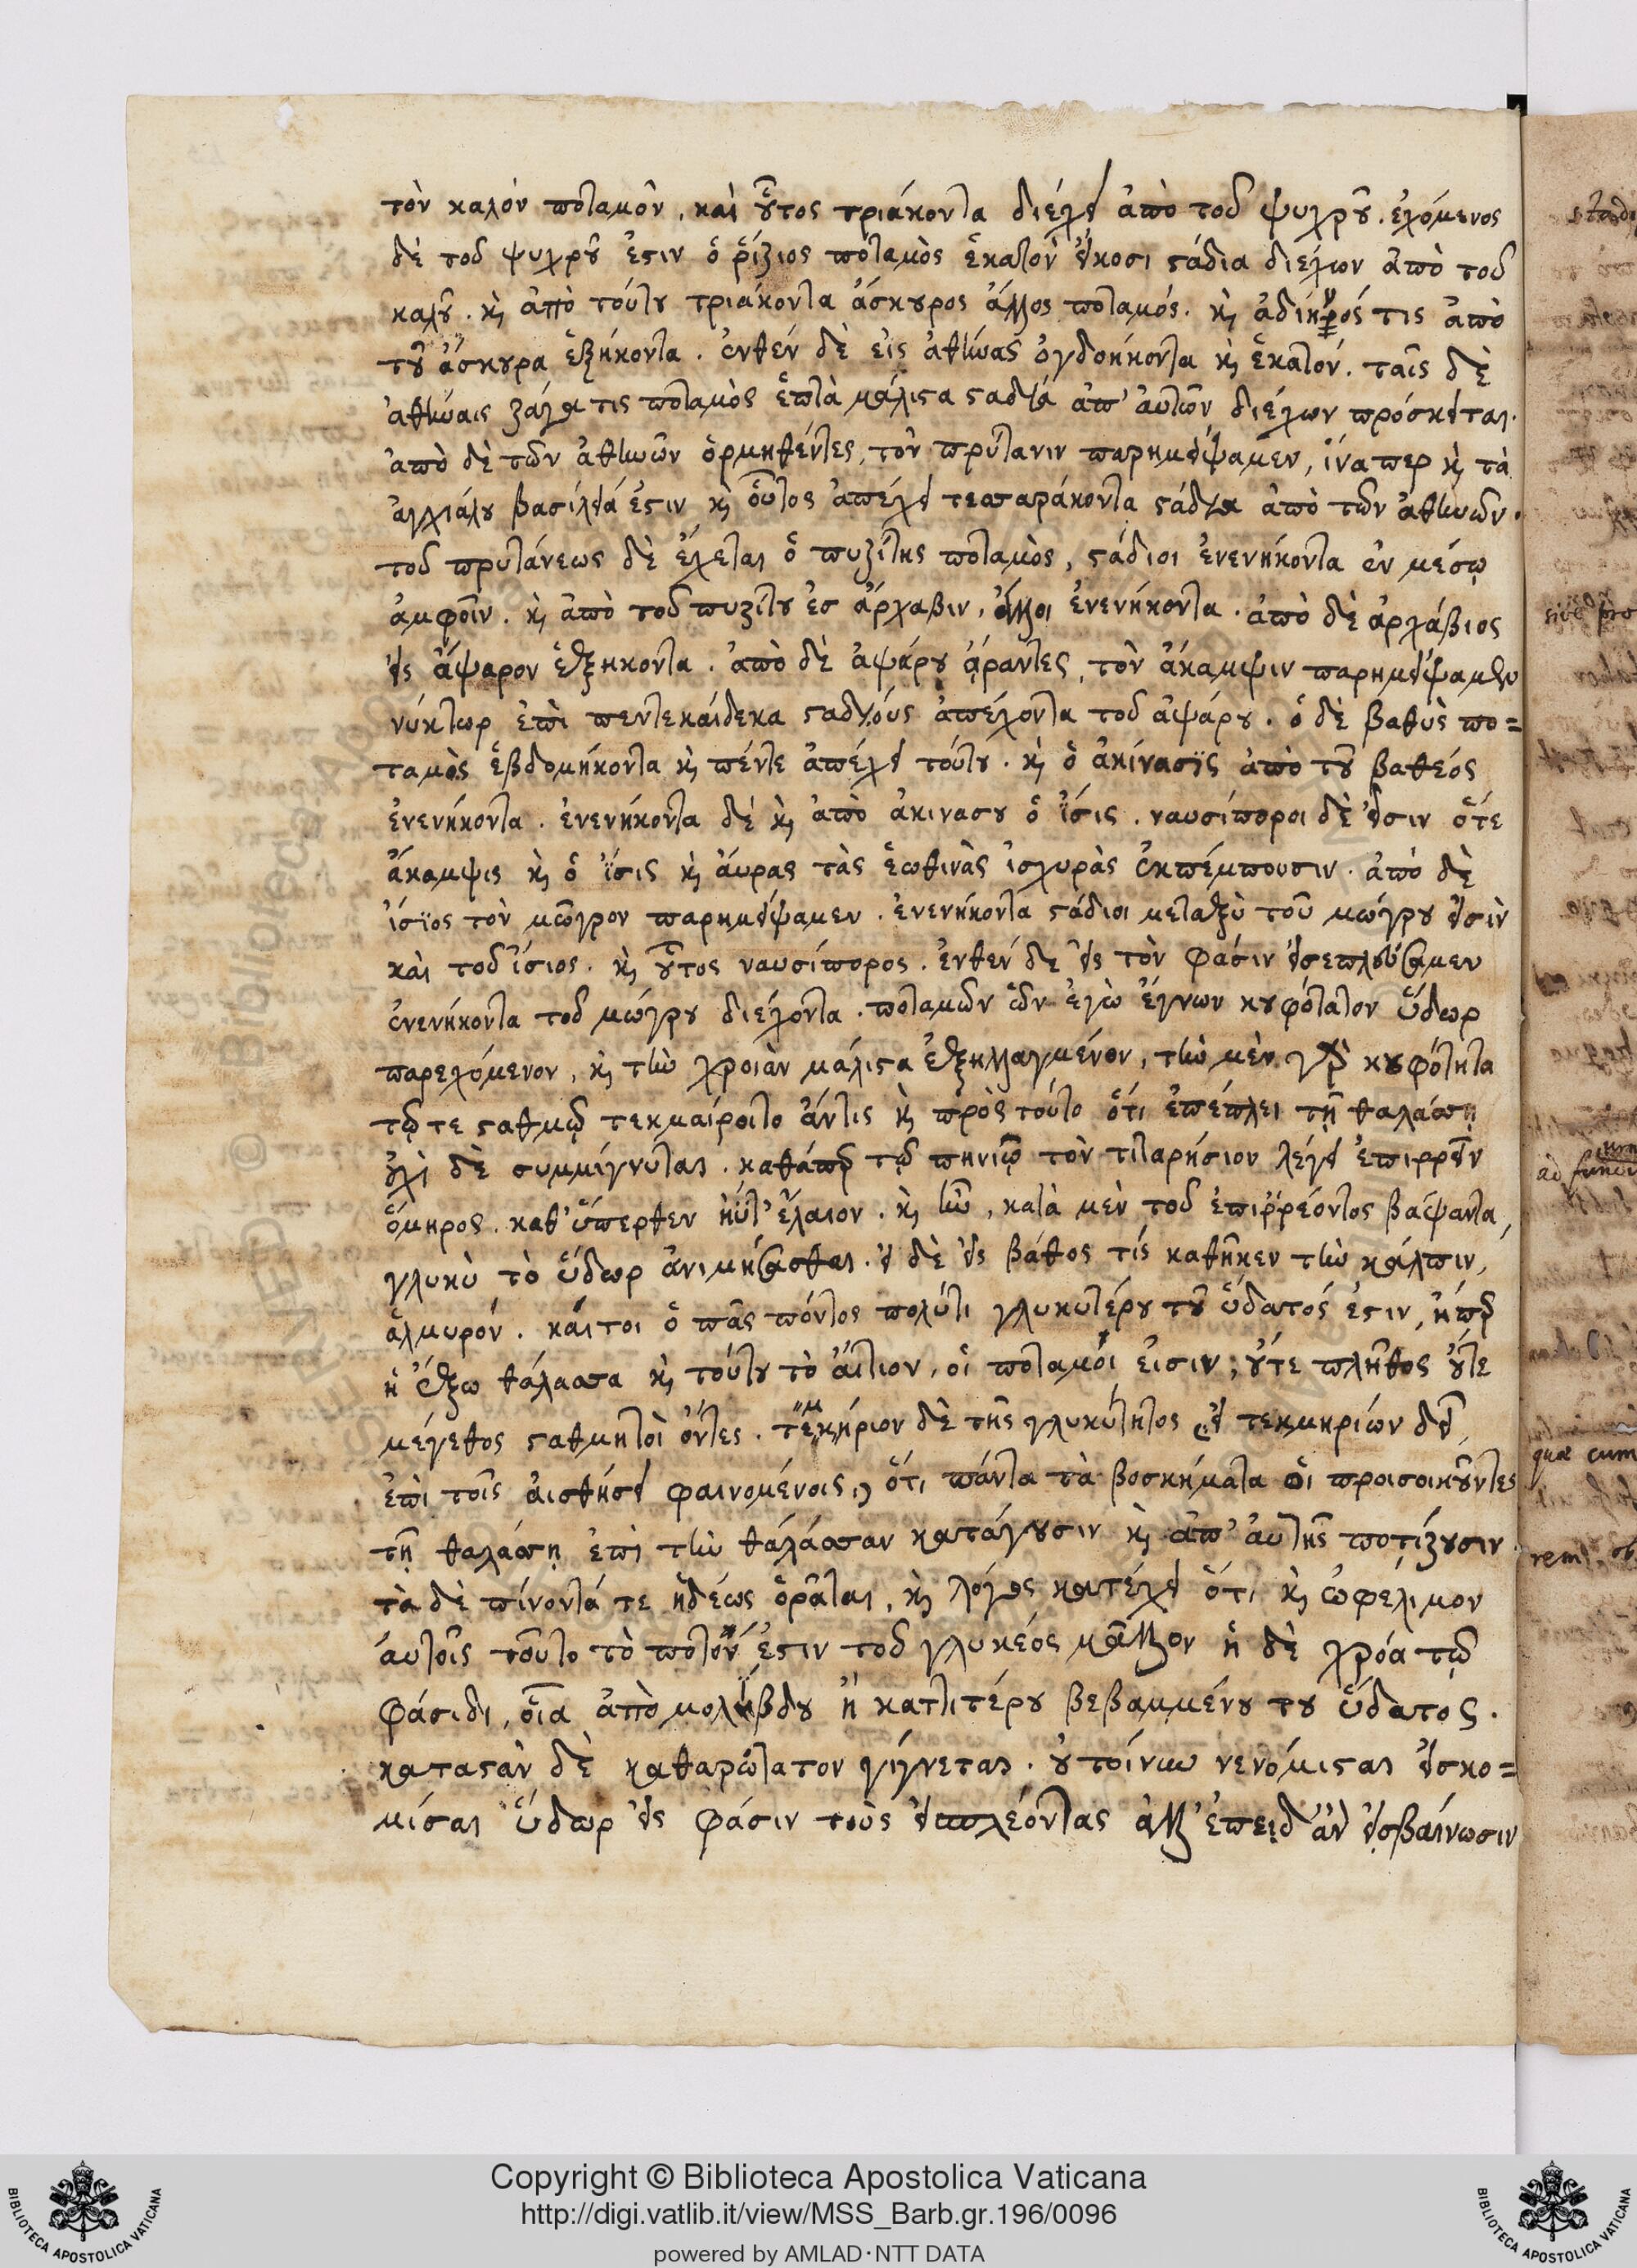 τὸν καλὸν ποταμὸν, καὶ οὗτος τριάκοντα διέχει ἀπὸ τοῦ ψυχροῦ. ἐχόμενος
δὲ τοῦ ψυχροῦ ἐστιν ὁ ῥίζιος ποταμὸς ἑκατὸν εἴκοσι στάδια διέχων ἀπὸ τοῦ
καλοῦ. καὶ ἀπὸ τούτου τριάκοντα ἄσκουρος ἄλλος ποταμός. καὶ τις ἀπὸ
τοῦ ἄσκουρα ἑξήκοντα. ἐνθέν δὲ εἰς ἀθήνας ὀγδοήκοντα καὶ ἑκατόν. ταῖς δὲ
ἀθήναις ζάγα τις ποταμὸς ἑπτὰ μάλιστα στάδια ἀπ' αὐτῶν διέχων πρόσκειται.
ἀπὸ δὲ τῶν ἀθηνῶν ὁρμηθέντες, τὸν πρύτανιν παρημείψαμεν, ἵνα περ καὶ τὰ
ἀγχιάλου βασίλειά ἐστιν καὶ οὗτος ἀπέχει τεσσαράκοντα στάδια ἀπὸ τῶν ἀθηνῶν.
τοῦ πρυτάνεως δὲ ἔχεται ὁ πυξίτης ποταμὸς, στάδιοι ἐνενήκοντα ἐν μέσῳ
ἀμφοῖν. καὶ ἀπὸ τοῦ πυξίτου ἐσ ἄρχαβιν, ἄλλοι ἐνενήκοντα. ἀπὸ δὲ ἀρχάβιος
εἰς ἄψαρον ἑξήκοντα. ἀπὸ δὲ ἀψάρου ἄραντες, τὸν ἄκαμψιν παρημείψαμεν
νύκτωρ ἐπὶ πεντεκαίδεκα σταδίους ἀπέχοντα τοῦ ἀψάρου. ὁ δὲ βαθὺς πο=
ταμὸς ἑβδομήκοντα καὶ πέντε ἀπέχει τούτου. καὶ ὁ ἀκίνασϊς ἀπὸ τοῦ βαθέος
ἐνενήκοντα. ἐνενήκοντα δὲ καὶ ἀπὸ ἀκινασου ὁ ἴσις. ναυσίποροι δὲ εἰσιν ὅτε
ἄκαμψις καὶ ὁ ἴσις καὶ ἄυρας τὰς ἑωθινὰς ἰσχυρὰς ἐκπέμπουσιν. ἀπὸ δὲ
ἴσϊος τὸν μῶγρον παρημείψαμεν. ἐνενήκοντα στάδιοι μεταξὺ τοῦ μώγρου εἰσὶν
καὶ τοῦ ἴσιος. καὶ οὗτος ναυσίπορος. ἐνθέν δὲ εἰς τὸν φάσιν εἰσεπλεύσαμεν
ἐνενήκοντα τοῦ μώγρου διέχοντα. ποταμῶν ὧν ἐγὼ ἔγνων κουφότατον ὕδωρ
παρεχόμενον, καὶ τὴν χροιὰν μάλιστα ἐξηλλαγμένον, τὴν μὲν γὰρ κουφότητα
τῷ τε σταθμῷ τεκμαίροιτο ἄντις καὶ πρὸς τούτο ὅτι ἐπέπλει τῇ θαλάσσῃ
οὐχὶ δὲ συμμίγνυται. καθάπερ τῷ πηνιῷ τὸν τιταρήσιον λέγει ἐπιρρεῖν
ὅμηρος. καθ' ὕπερθεν ἠΰτ' ἔλαιον. καὶ ἦν, κατὰ μὲν τοῦ ἐπιρρέοντος βάψαντα,
γλυκὺ τὸ ὕδωρ ἀνιμήσασθαι. εἰ δὲ εἰς βάθος τίς καθῆκεν τὴν κάλπιν,
ἁλμυρόν. καίτοι ὁ πᾶς πόντος πολύτι γλυκυτέρου τοῦ ὕδατός ἐστιν, ἤπερ
ἡ ἔξω θάλασσα καὶ τούτου τὸ αἴτιον, οἱ ποταμοί εἰσιν, οὔτε πλῆθος οὔτε
μέγεθος σταθμητοὶ ὄντες. τεκμήριον δὲ τῆς γλυκύτητος εἰ τεκμηρίων δεῖ
ἐπὶ τοῖς αἰσθήσει φαινομένοις, ὅτι πάντα τὰ βοσκήματα οἱ προισοικοῦντες
τῇ θαλάσσῃ ἐπὶ τὴν θάλασσαν κατάγουσιν καὶ ἀπ' αὐτῆς ποτίζουσιν.
τὰ δὲ πίνοντά τε ἡδέως ὁρᾶται, καὶ λόγος κατέχει ὅτι καὶ ὠφέλιμον
ἀυτοῖς τοῦτο τὸ ποτόν ἐστιν τοῦ γλυκέος μᾶλλον ἡ δὲ χρόα τῷ
φάσιδι, οἷα ἀπὸ μολύβδου ἢ καττιτέρου βεβαμμένου του ὕδατος.
καταστὰν δὲ καθαρώτατον γίγνεται. οὐ τοίνυν νενόμισται εἰσκο=
μίσαι ὕδωρ εἰς φάσιν τοὺς εἰσπλέοντας ἀλλ' ἐπειδ' ἂν εἰσβαίνωσιν
Copyright © Biblioteca Apostolica Vaticana
http://digi.vatlib.it/view/MSS_Barb.gr.196/0096
powered by AMLAD·NTT DATA
BIBLIOTECA APOSTOLICA VATICANA
BIBLIOTECA APOSTOLICA VATICANA